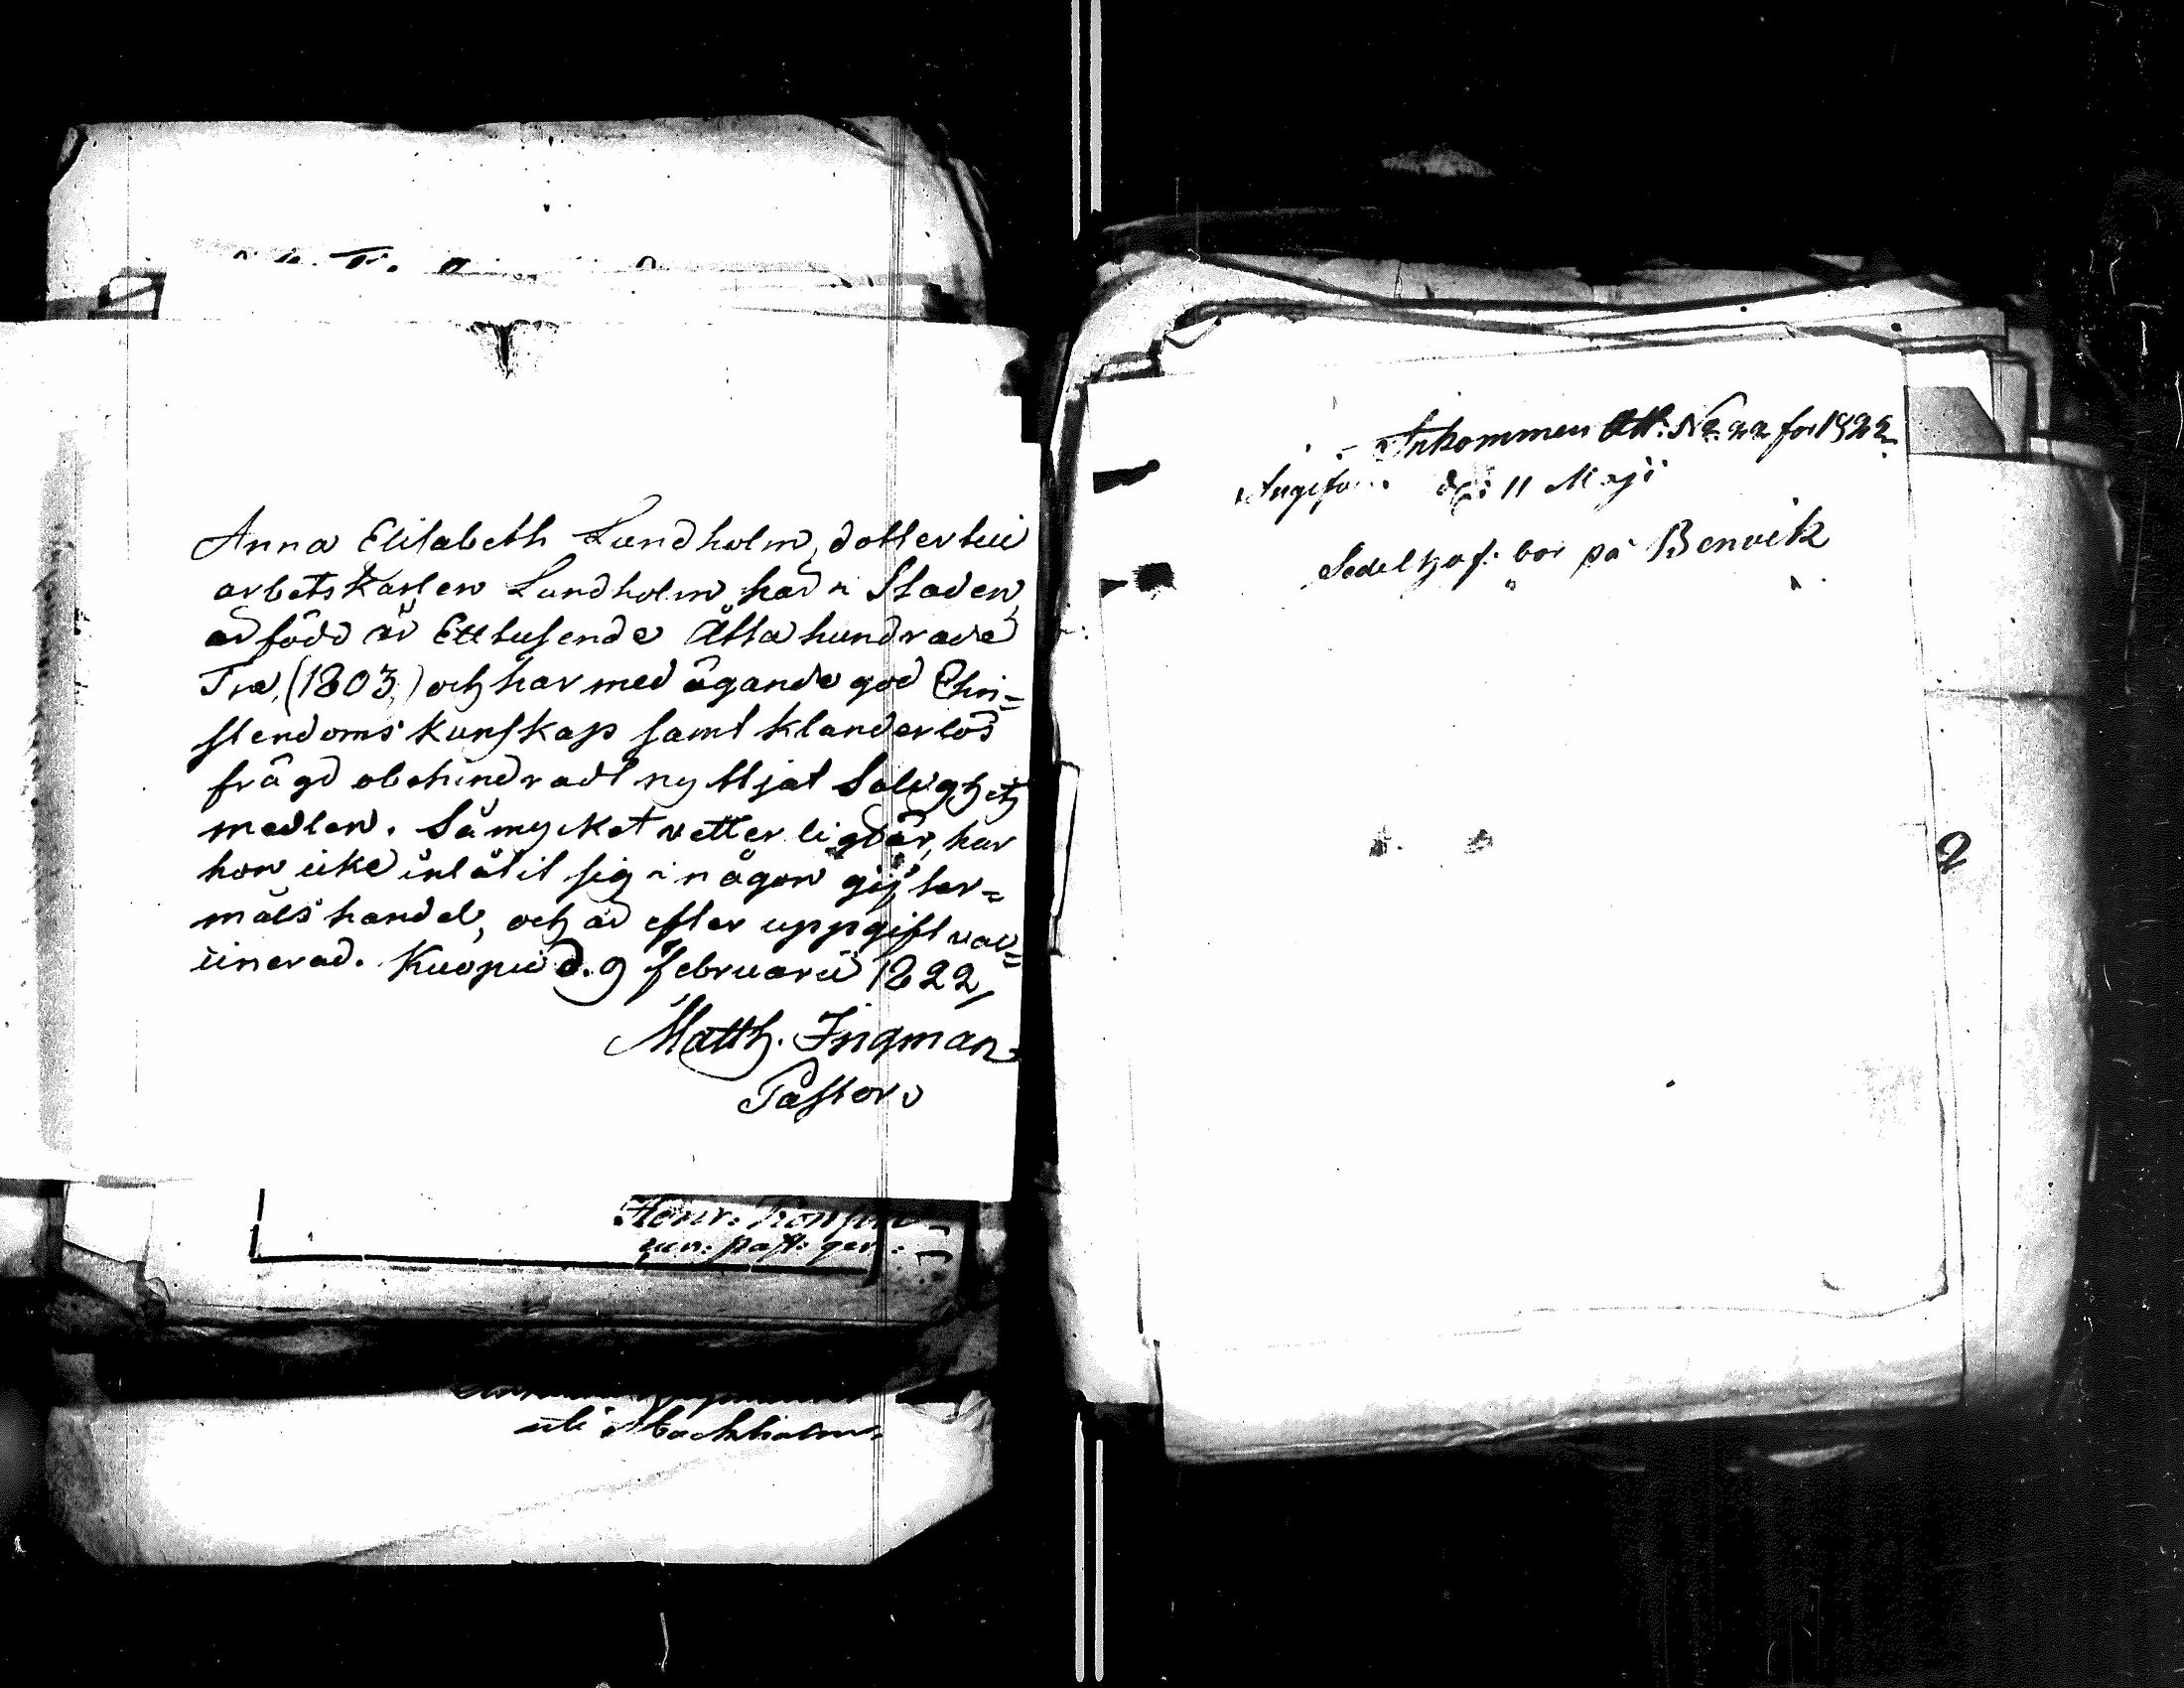 Anna Elisabeth Lundholm, dotter till
arbetskarlen Lundholm här i Staden,
är född år Ettusende Åtta hundrade
Tre, (1803,) och har med ägande god Chri=
stendoms kunskap samt klanderlös
frägd obehindradt nyttjat Salighets
medlen. Så mycket vetterligt är, har
hon icke inlåtit sig i någon gifter=
måls handel, och är efter uppgift vac=
cinerad. Kuopio d. 9 februarii 1822,
Matth. Ingman
Pastor.
Henr.
past:
uti Stockholm.
Inkommen Att: No. 22 för 1822
d: 11 Maji
bor på Benvik
2